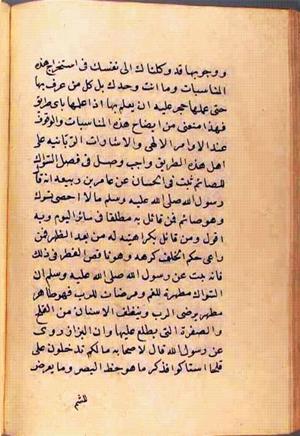 ووجوبها قد وكلناك الى نفسك في استخراج هذه
المناسبات وما انت وحدك بل كل من عرف بها
حتى عملها حجر عليه ان يعلم بها اذا عملها باى طريق
فهذا منعنى من ايضاح هذه المناسبات والوقوف
عند الاوامر الالهي والاشارات الربانيه على
اهل هذه الطريق واجب وصل في فصل السواك
للصائم ثبت في الحسان عن عامر بن ربيعه انه قال
رسول الله صلى الله عليه وسلم مالا احصى يتسوك
وهو صائم فمن قائل به مطلقا في سائر اليوم وبه
اقول ومن قائل بكراهيته له من بعد الظهر فمن
راعى حكم الخلوف كرهه وهو ناقص الفطر في ذلك
فانه ثبت عن رسول الله صلى الله عليه وسلم ان
السواك مطهرة للفم ومرضات للرب فهو طاهر
مطهر يرضى الرب وينظف الاسنان من القلح
والصفرة التى يطلع عليها وان البزار روى
عن رسول الله قال لاصحابه مالكم تدخلون على
قلحا استاكوا فذكر ما هو حظ البصر وما يعرض
للشم